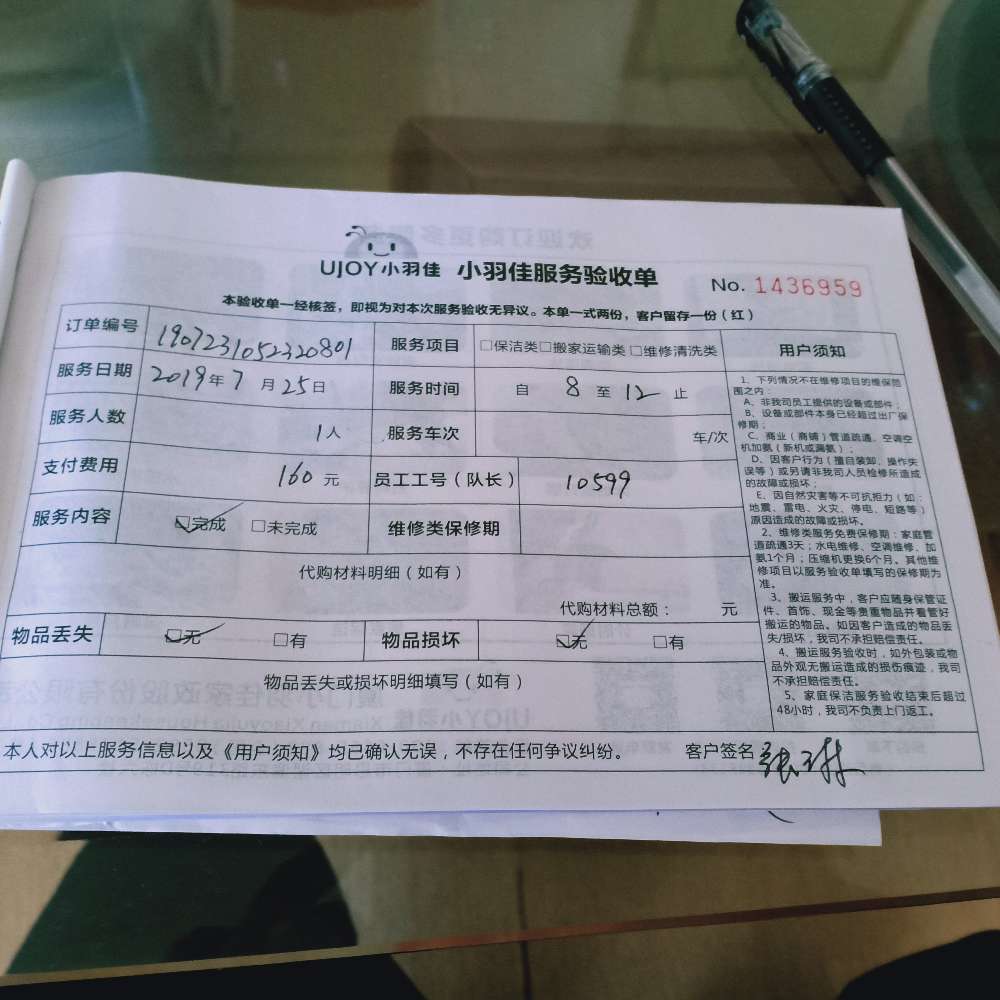 UJOY小羽佳 小羽佳服务验收单 No. 1436959
本验收单一经核签，即视为对本次服务验收无异议。本单一式两份，客户留存一份（红）
订单编号 1907231052320801 服务项目 □保洁类□搬家运输类 □维修清洗类
服务日期 2019年7月25日 服务时间 自 8 至 12 止
服务人数 1人 服务车次 车/次
支付费用 160元 员工工号（队长） 10599
服务内容 ☑完成 □未完成 维修类保修期
代购材料明细（如有）
代购材料总额： 元
物品丢失 ☑无 □有 物品损坏 ☑无 □有
物品丢失或损坏明细填写（如有）
用户须知
1、下列情况不在维修项目的维保范
围之内：
A、非我司员工提供的设备或部件；
B、设备或部件本身已经超过出厂保
修期；
C、商业（商铺）管道疏通、空调空
机加氨（新机或漏氨）；
D、因客户行为（擅自装卸、操作失
误等）或另请非我司人员检修所造成
的故障或损坏；
E、因自然灾害等不可抗拒力（如：
地震、雷电、火灾、停电、短路等）
原因造成的故障或损坏。
2、维修类服务免费保修期：家庭管
道疏通3天；水电维修、空调维修、加
氨1个月；压缩机更换6个月。其他维
修项目以服务验收单填写的保修期为
准。
3、搬运服务中，客户应随身保管证
件、首饰、现金等贵重物品并看管好
搬运的物品。如因客户造成的物品丢
失/损坏，我司不承担赔偿责任。
4、搬运服务验收时，如外包装或物
品外观无搬运造成的损伤痕迹，我司
不承担赔偿责任。
5、家庭保洁服务验收结束后超过
48小时，我司不负责上门返工。
本人对以上服务信息以及《用户须知》均已确认无误，不存在任何争议纠纷。 客户签名